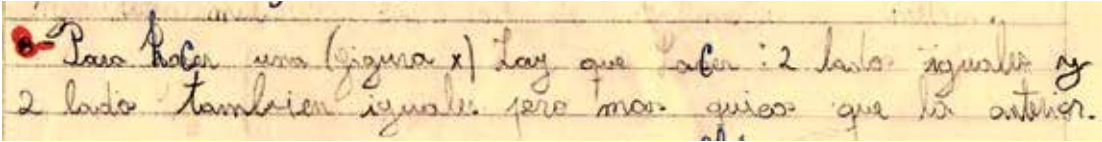 B- Para hacer una (figura x) hay que hacer : 2 lados iguales y
2 lado tambien iguales pero mas que la anterior.